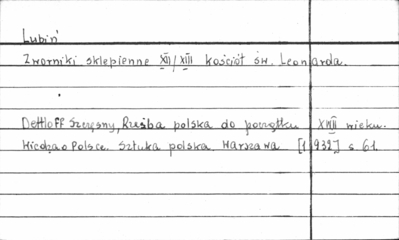 Lubiń
Zworniki sklepienne XII/XIII kościół św. Leonarda.
Dettloff Szczęsny, Rzeźba polska do początku XVIII wieku.
Wiedza o Polsce. Sztuka polska. Warszawa [1932] s 61